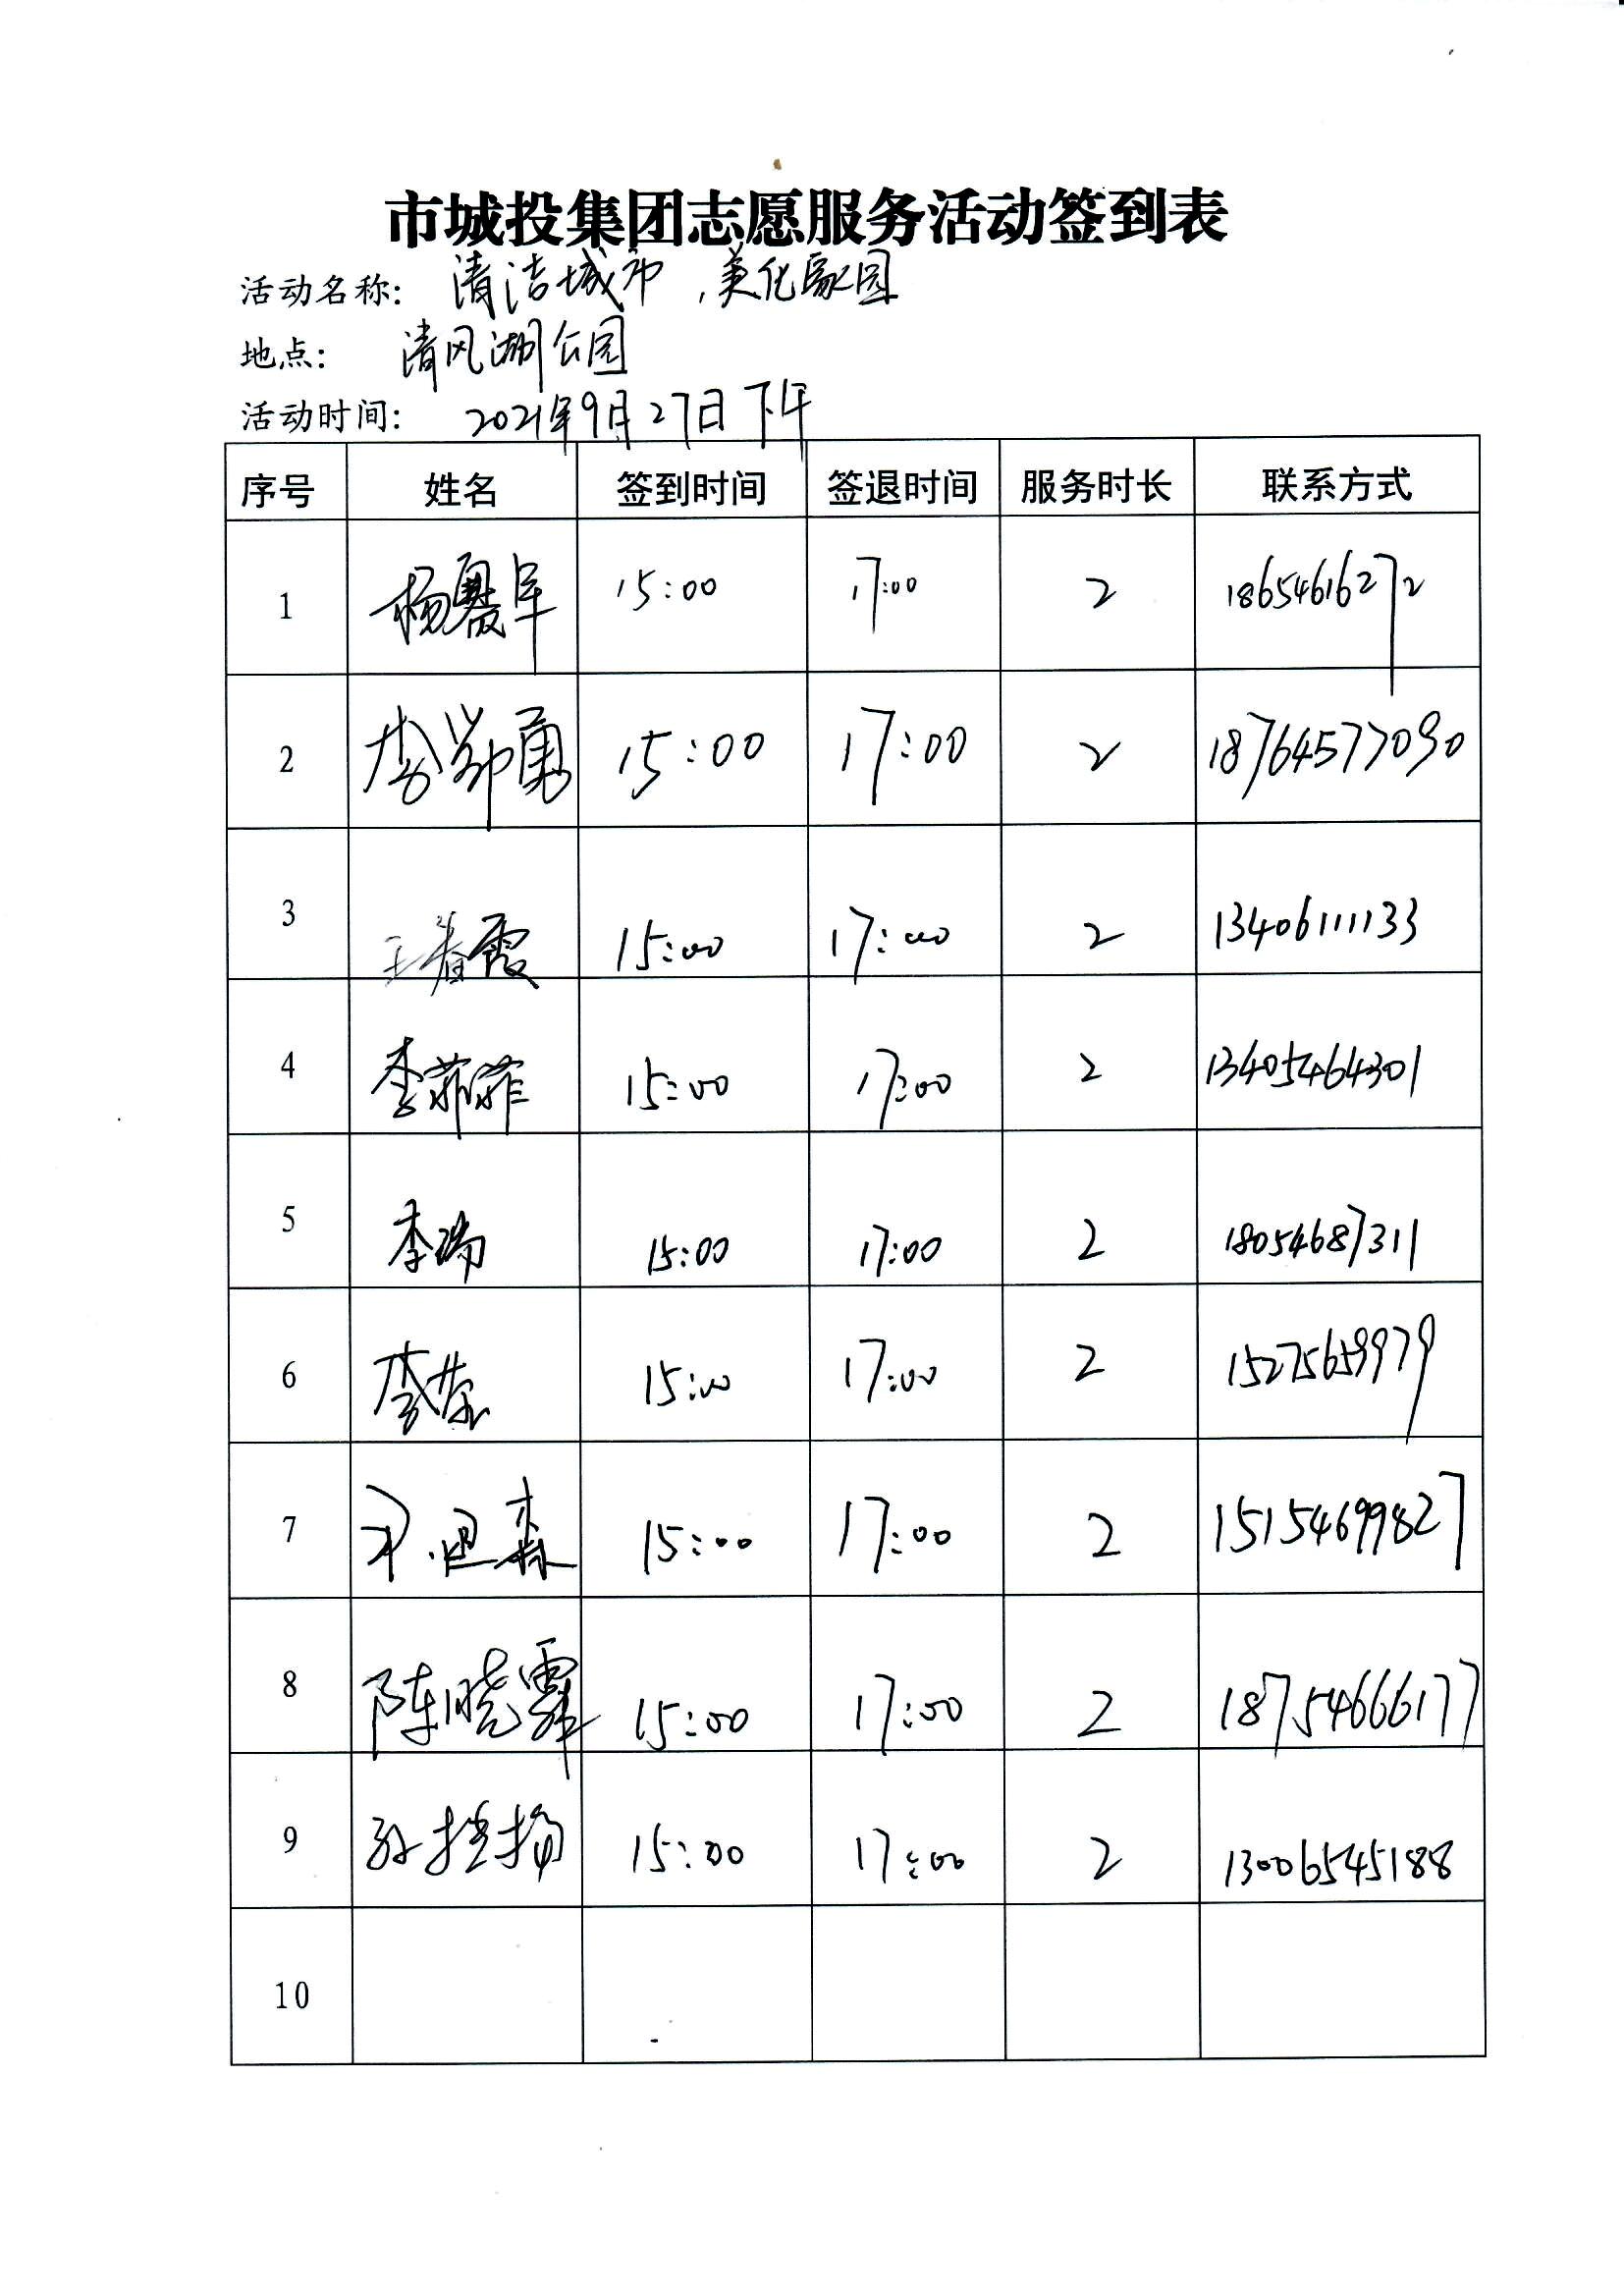 市城投集团志愿服务活动签到表
活动名称: 清洁城市,美化家园
地点: 清风湖公园
活动时间: 2021年9月27日下午
序号 姓名 签到时间 签退时间 服务时长 联系方式
1 杨 15:00 17:00 2 18654616272
2 李 勇 15:00 17:00 2 18764577090
3 王春霞 15:00 17:00 2 13406111133
4 李菲菲 15:00 17:00 2 13405464301
5 李瑞 15:00 17:00 2 18054687311
6 李荣 15:00 17:00 2 15275659979
7 森 15:00 17:00 2 15154699827
8 陈晓霏 15:00 17:00 2 18754666177
9 孙 扬 15:00 17:00 2 13006545188
10